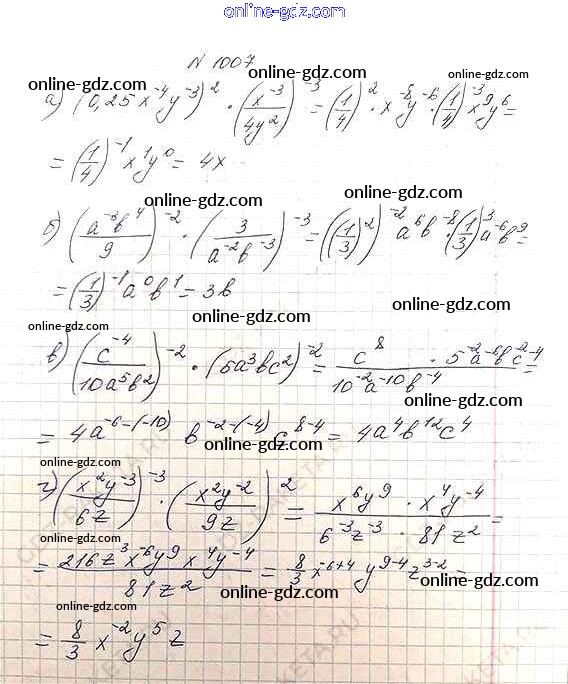 online-gdz.com
N 1007
online-gdz.com online-gdz.com
а) (0,25x⁻⁴y⁻³)² · (x⁻³/4y²)⁻³ = (1/4)² · x⁻⁸y⁻⁶ · (1/4)⁻³x⁹y⁶ =
online-gdz.com
= (1/4)⁻¹x¹y⁰ = 4x
online-gdz.com online-gdz.com
б) (a⁻³b⁴/9)⁻² · (3/a⁻²b⁻³)⁻³ = ((1/3)²)⁻² a⁶b⁻⁸ · (1/3)³a⁻⁶b⁹ =
online-gdz.com
= (1/3)⁻¹a⁰b¹ = 3b
online-gdz.com online-gdz.com
online-gdz.com
в) (c⁻⁴/10a⁵b²)⁻² · (5a³bc²)⁻² = c⁸ · 5⁻²a⁻⁶b⁻²c⁻⁴/10⁻²a⁻¹⁰b⁻⁴ =
online-gdz.com
= 4a⁻⁶⁻⁽⁻¹⁰⁾ b⁻²⁻⁽⁻⁴⁾ c⁸⁻⁴ = 4a⁴b¹²c⁴
online-gdz.com online-gdz.com
online-gdz.com
г) (x²y⁻³/6z)⁻³ · (x²y⁻²/9z)² = x⁶y⁹ · x⁴y⁻⁴/6⁻³z⁻³ · 81z² =
online-gdz.com online-gdz.com
= 216z³x⁻⁶y⁹x⁴y⁻⁴/81z² = 8/3 x⁻⁶⁺⁴ y⁹⁻⁴z³⁻² =
online-gdz.com
online-gdz.com online-gdz.com
= 8/3 x⁻²y⁵z
online-gdz.com